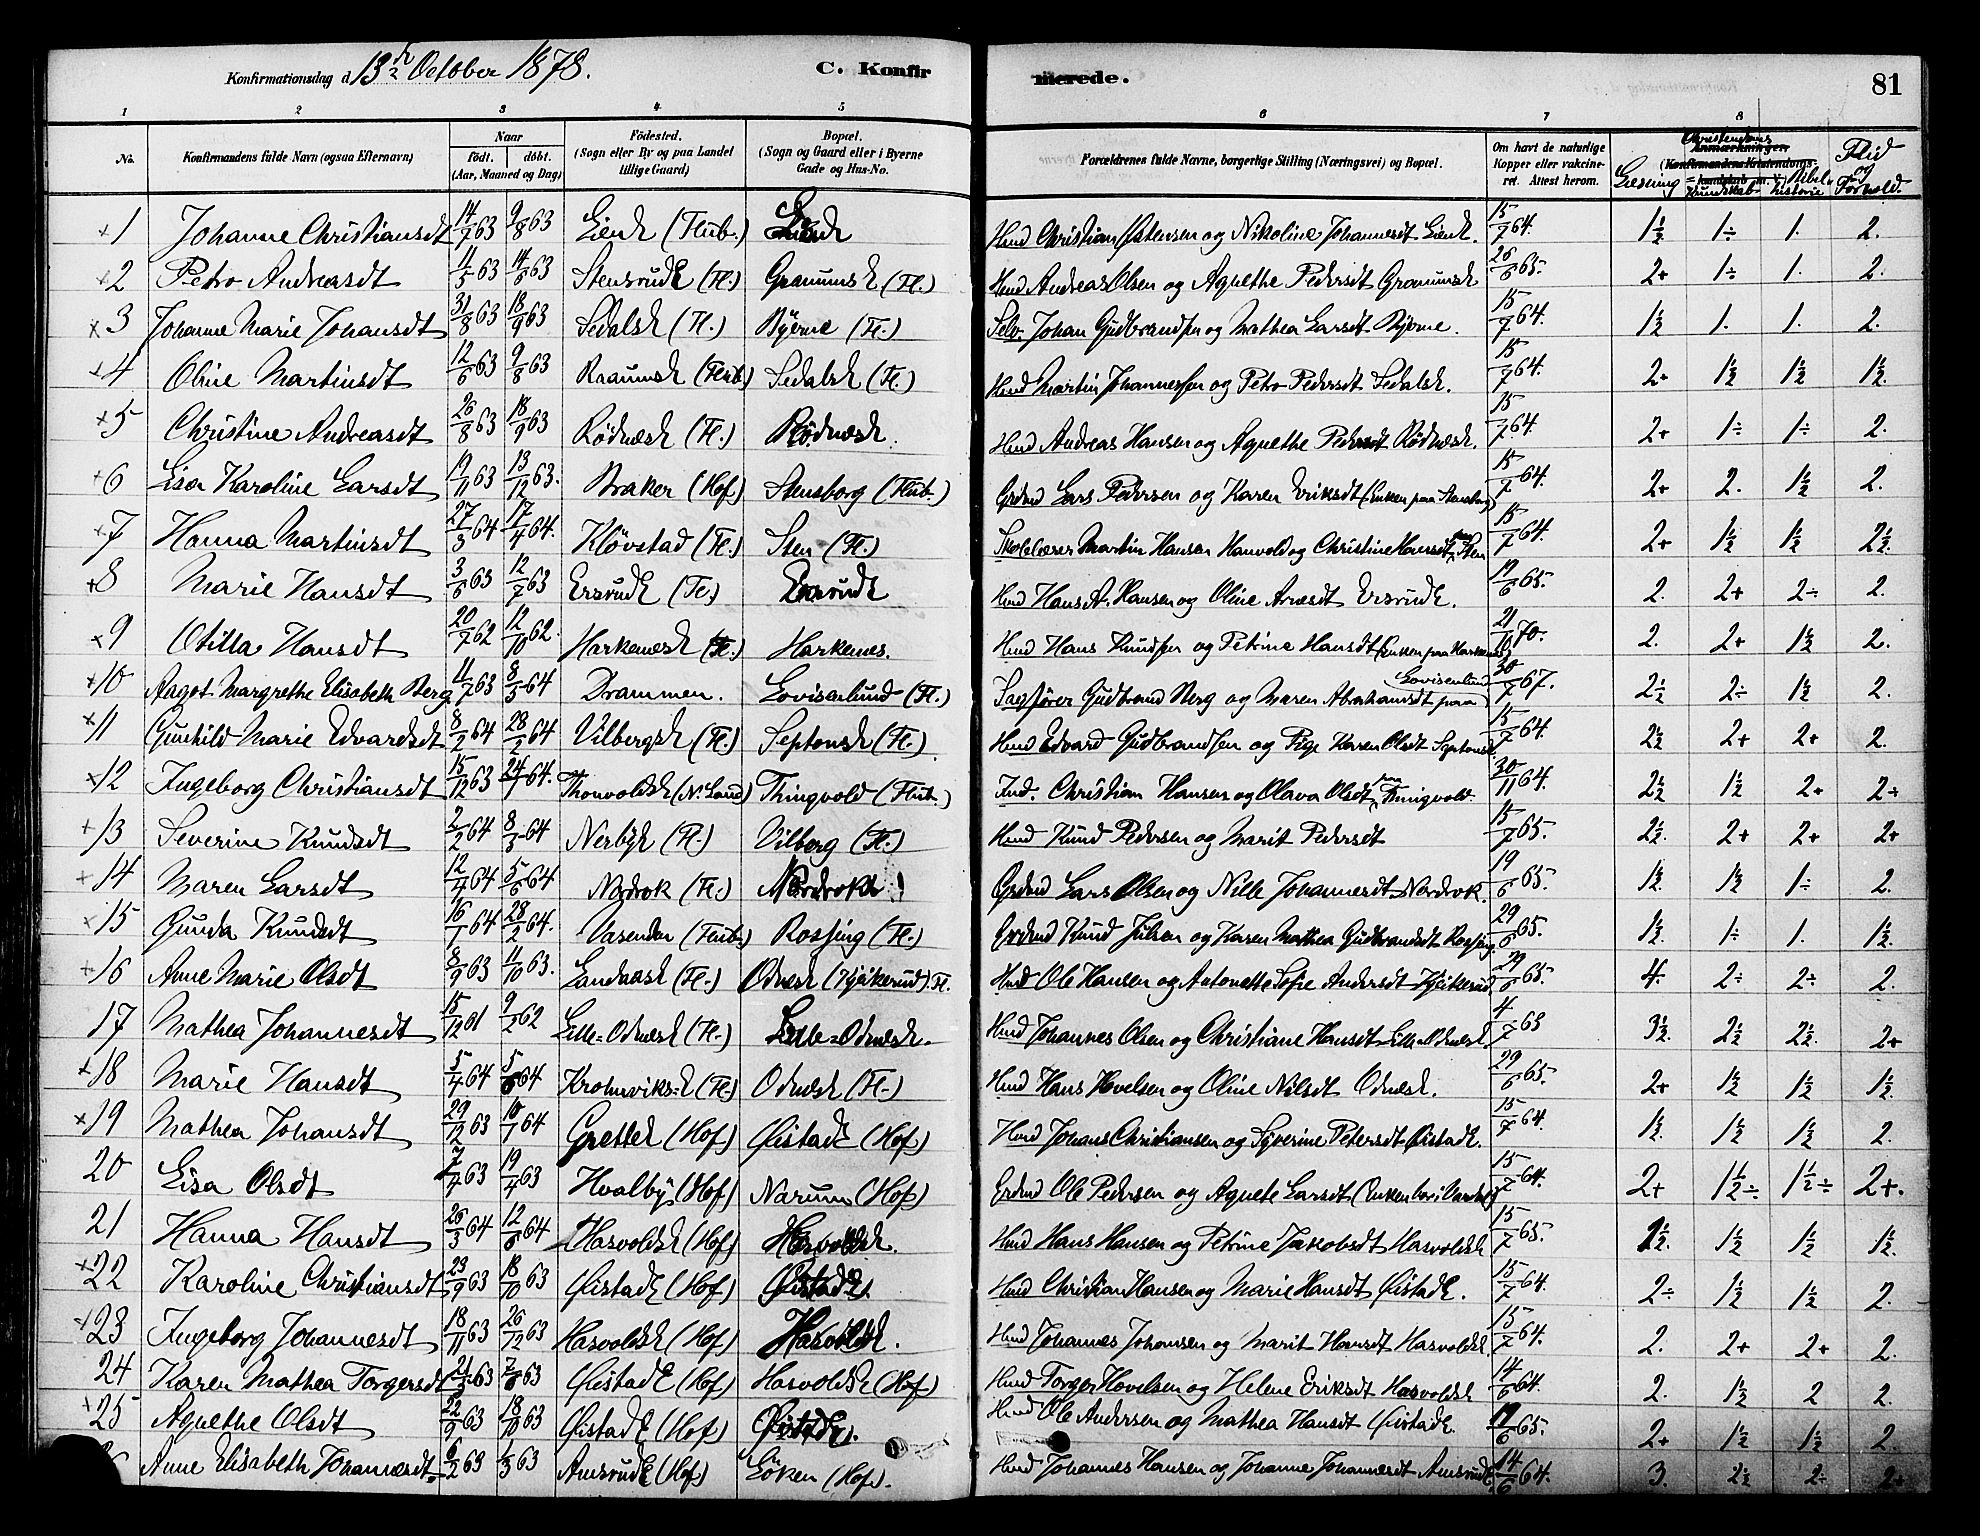 Konfirmationsdag d. 13de October 1878.
C. Konfirmerede.
81
1 2 3 4 5 6 7 8
No.
Konfirmandens fulde Navn (ogsaa Efternavn)
Naar
födt. döbt.
(Aar, Maaned og Dag)
Födested.
(Sogn eller By og paa Landet tillige Gaard)
Bopæl.
(Sogn og Gaard eller i Byerne Gade og Hus-No.
Forældrenes fulde Navne, borgerlige Stilling (Næringsvei) og Bopæl.
Om havt de naturlige Kopper eller vakcineret. Attest herom.
Anmærkninger
(Konfirmandens Kristendomskundskab m. V.)
Læsning
Christendomskundskab
Bibelhistorie
Flid og Forhold.
1 Johanne Christiansdt 14/7 63 9/8 63 Liene (Flub.) Liene Husmd Christian Østensen og Nikoline Johannesdt Liene. 15/7 64. 1½ 1÷ 1. 2.
2 Petra Andreasdt 11/5 63 14/6 63 Stensrude (Fl.) Granumse (Fl.) Hmd Andreas Olsen og Agnethe Pedersdt Granumse 26/6 65. 2+ 1÷ 1. 2.
3 Johanne Marie Johansdt 31/8 63 18/9 63 Sedalse (Fl.) Bjerne (Fl.) Selv. Johan Gudbrandsen og Mathea Larsdt Bjerne. 15/7 64. 1½ 1. 1. 2.
4 Oline Martinsdt 12/6 63 9/8 63 Raaumse (Flub) Sedalse (Fl.) Hmd Martin Johannessen og Petra Pedersdt Sedalse. 15/7 64. 2+ 1½ 1½ 1½.
5 Christine Andreasdt 26/8 63 18/9 63 Rödnæse (Fl.) Rödnæse. Hmd Andreas Hansen og Agnethe Pedersdt Rödnæse. 15/7 64. 2+ 1÷ 1÷ 2.
6 Lisa Karoline Larsdt 19/11 63 13/12 63. Braker (Hof) Stensborg (Flub.) Grdmd Lars Pedersen og Karen Eriksdt (Enken paa Stensborg) 15/7 64. 2+ 2. 1½ 2.
7 Hanna Martinsdt 27/3 64 17/4 64. Klövstad (Fl.) Sten (Fl.) Skolelærer Martin Hansen Hanvold og Christine Hansdt paa Sten 15/7 64. 2+ 1½ 1½ 2½.
8 Marie Hansdt 3/6 63 12/7 63 Ersrude (Fl.) Ersrude Hmd Hans A. Hansen og Oline Arnesdt Ersrude. 19/6 65. 2. 2+ 2÷ 2.
9 Otilla Hansdt 20/7 62 12/10 62. Harkenese (Fl.) Harkenes. Hmd Hans Knudsen og Petrine Hansdt (Enken paa Harkenes) 21/10 70. 2. 2+ 1½ 2.
10 Aagot Margrethe Elisabeth Berg 11/7 63 8/5 64 Drammen. Lovisenlund (Fl.) Sagförer Gudbrand Berg og Maren Abrahamsdt paa Lovisenlund 30/7 67. 2½ 2÷ 1½ 2.
11 Gunhild Marie Edvardsdt 8/2 64 28/2 64 Vilbergse (Fl.) Septonse (Fl.) Hmd Edvard Gudbrandsen og Pige Karen Olsdt Septonse 15/7 64. 2½ 2+ 2+ 2.
12 Ingeborg Christiansdt 15/12 63 24/1 64. Thonvoldse (N. Land) Thingvold (Flub.) Ind. Christian Hansen og Olava Olsdt paa Thingvold. 30/11 64. 2½ 1½ 2+ 2÷
13 Severine Knudsdt 2/2 64 8/3 64 Nerbye (Fl.) Vilberg (Fl.) Hmd Knud Pedersen og Marit Pedersdt 15/7 65. 2½. 2+ 2+ 2+
14 Maren Larsdt 12/4 64 5/6 64 Nordrok (Fl.) Nordrok Grdmd Lars Olsen og Nille Johannesdt Nordrok. 19/6 65. 1½. 1½ 1÷ 2.
15 Gunda Knudsdt 16/1 64 28/2 64. Vasenden (Flub.) Rossing (Fl.) Grdmd Knud Julsen og Karen Mathea Gudbrandsdt Rossing. 29/6 65. 1½. 1÷ 1. 1½.
16 Anne Marie Olsdt 8/9 63 11/10 63. Landaase (Fl.) Odnæse (Kjikerud) Fl. Hmd Ole Hansen og Antonette Sofie Andersdt Kjikerud. 29/6 65. 4. 2÷ 2÷ 2.
17 Mathea Johannesdt 15/12 61 9/2 62 Lille-Odnæse (Fl.) Lille-Odnæse. Hmd Johannes Olsen og Christiane Hansdt Lille-Odnæse. 4/7 63 3½. 2½ 2½. 2+
18 Marie Hansdt 5/4 64 5/6 64 Krohnvikse (Fl.) Odnæse (Fl.) Hmd Hans Hovelsen og Oline Nilsdt Odnæse. 29/6 65. 2+ 1½ 1½ 1½
19 Mathea Johansdt 29/12 63 10/1 64 Grettee (Hof) Øistade (Hof) Hmd Johans Christiansen og Syverine Petersdt Øistade. 15/7 64. 1½. 1½ 1½ 2.
20 Lisa Olsdt 7/4 63 19/4 63 Hvalbye (Hof) Narum (Hof) Grdmd Ole Pedersen og Agnete Larsdt (Enken bor i Vardal) 15/7 64. 2+ 1½÷ 1½÷ 2+.
21 Hanna Hansdt 26/3 64 12/6 64 Hasvoldse (Hof) Hasvoldse. Hmd Hans Hansen og Petrine Jakobsdt Hasvoldse 15/7 65. 1½. 1½ 1½ 1½.
22 Karoline Christiansdt 23/9 63 18/10 63 Øistade (Hof) Øistade. Hmd Christian Hansen og Marie Hansdt Øistade. 15/7 64. 2÷ 1½ 1½ 2.
23 Ingeborg Johannesdt 18/11 63 26/12 63 Hasvoldse (Hof) Hasvoldse. Hmd Johannes Johansen og Marit Hansdt Hasvoldse. 15/7 64. 2. 2+ 2+ 2.
24 Karen Mathea Torgersdt 21/5 63 7/6 63 Øistade (Hof) Hasvoldse (Hof) Hmd Torger Hovelsen og Helene Eriksdt Hasvoldse 14/6 64. 2. 1½ 2 2.
25 Agnethe Olsdt 22/9 63 18/10 63 Øistade (Hof) Øistade. Hmd Ole Andersen og Mathea Hansdt Øistade. 19/6 65. 2+ 1½ 1½ 2.
6 Anne Elisabeth Johannesdt 6/2 63 1/3 63 Amsrude (Hof) Löken (Hof). Hmd Johannes Hansen og Johanne Johannesdt Amsrude. 14/6 64. 3. 2½ 2÷ 2+